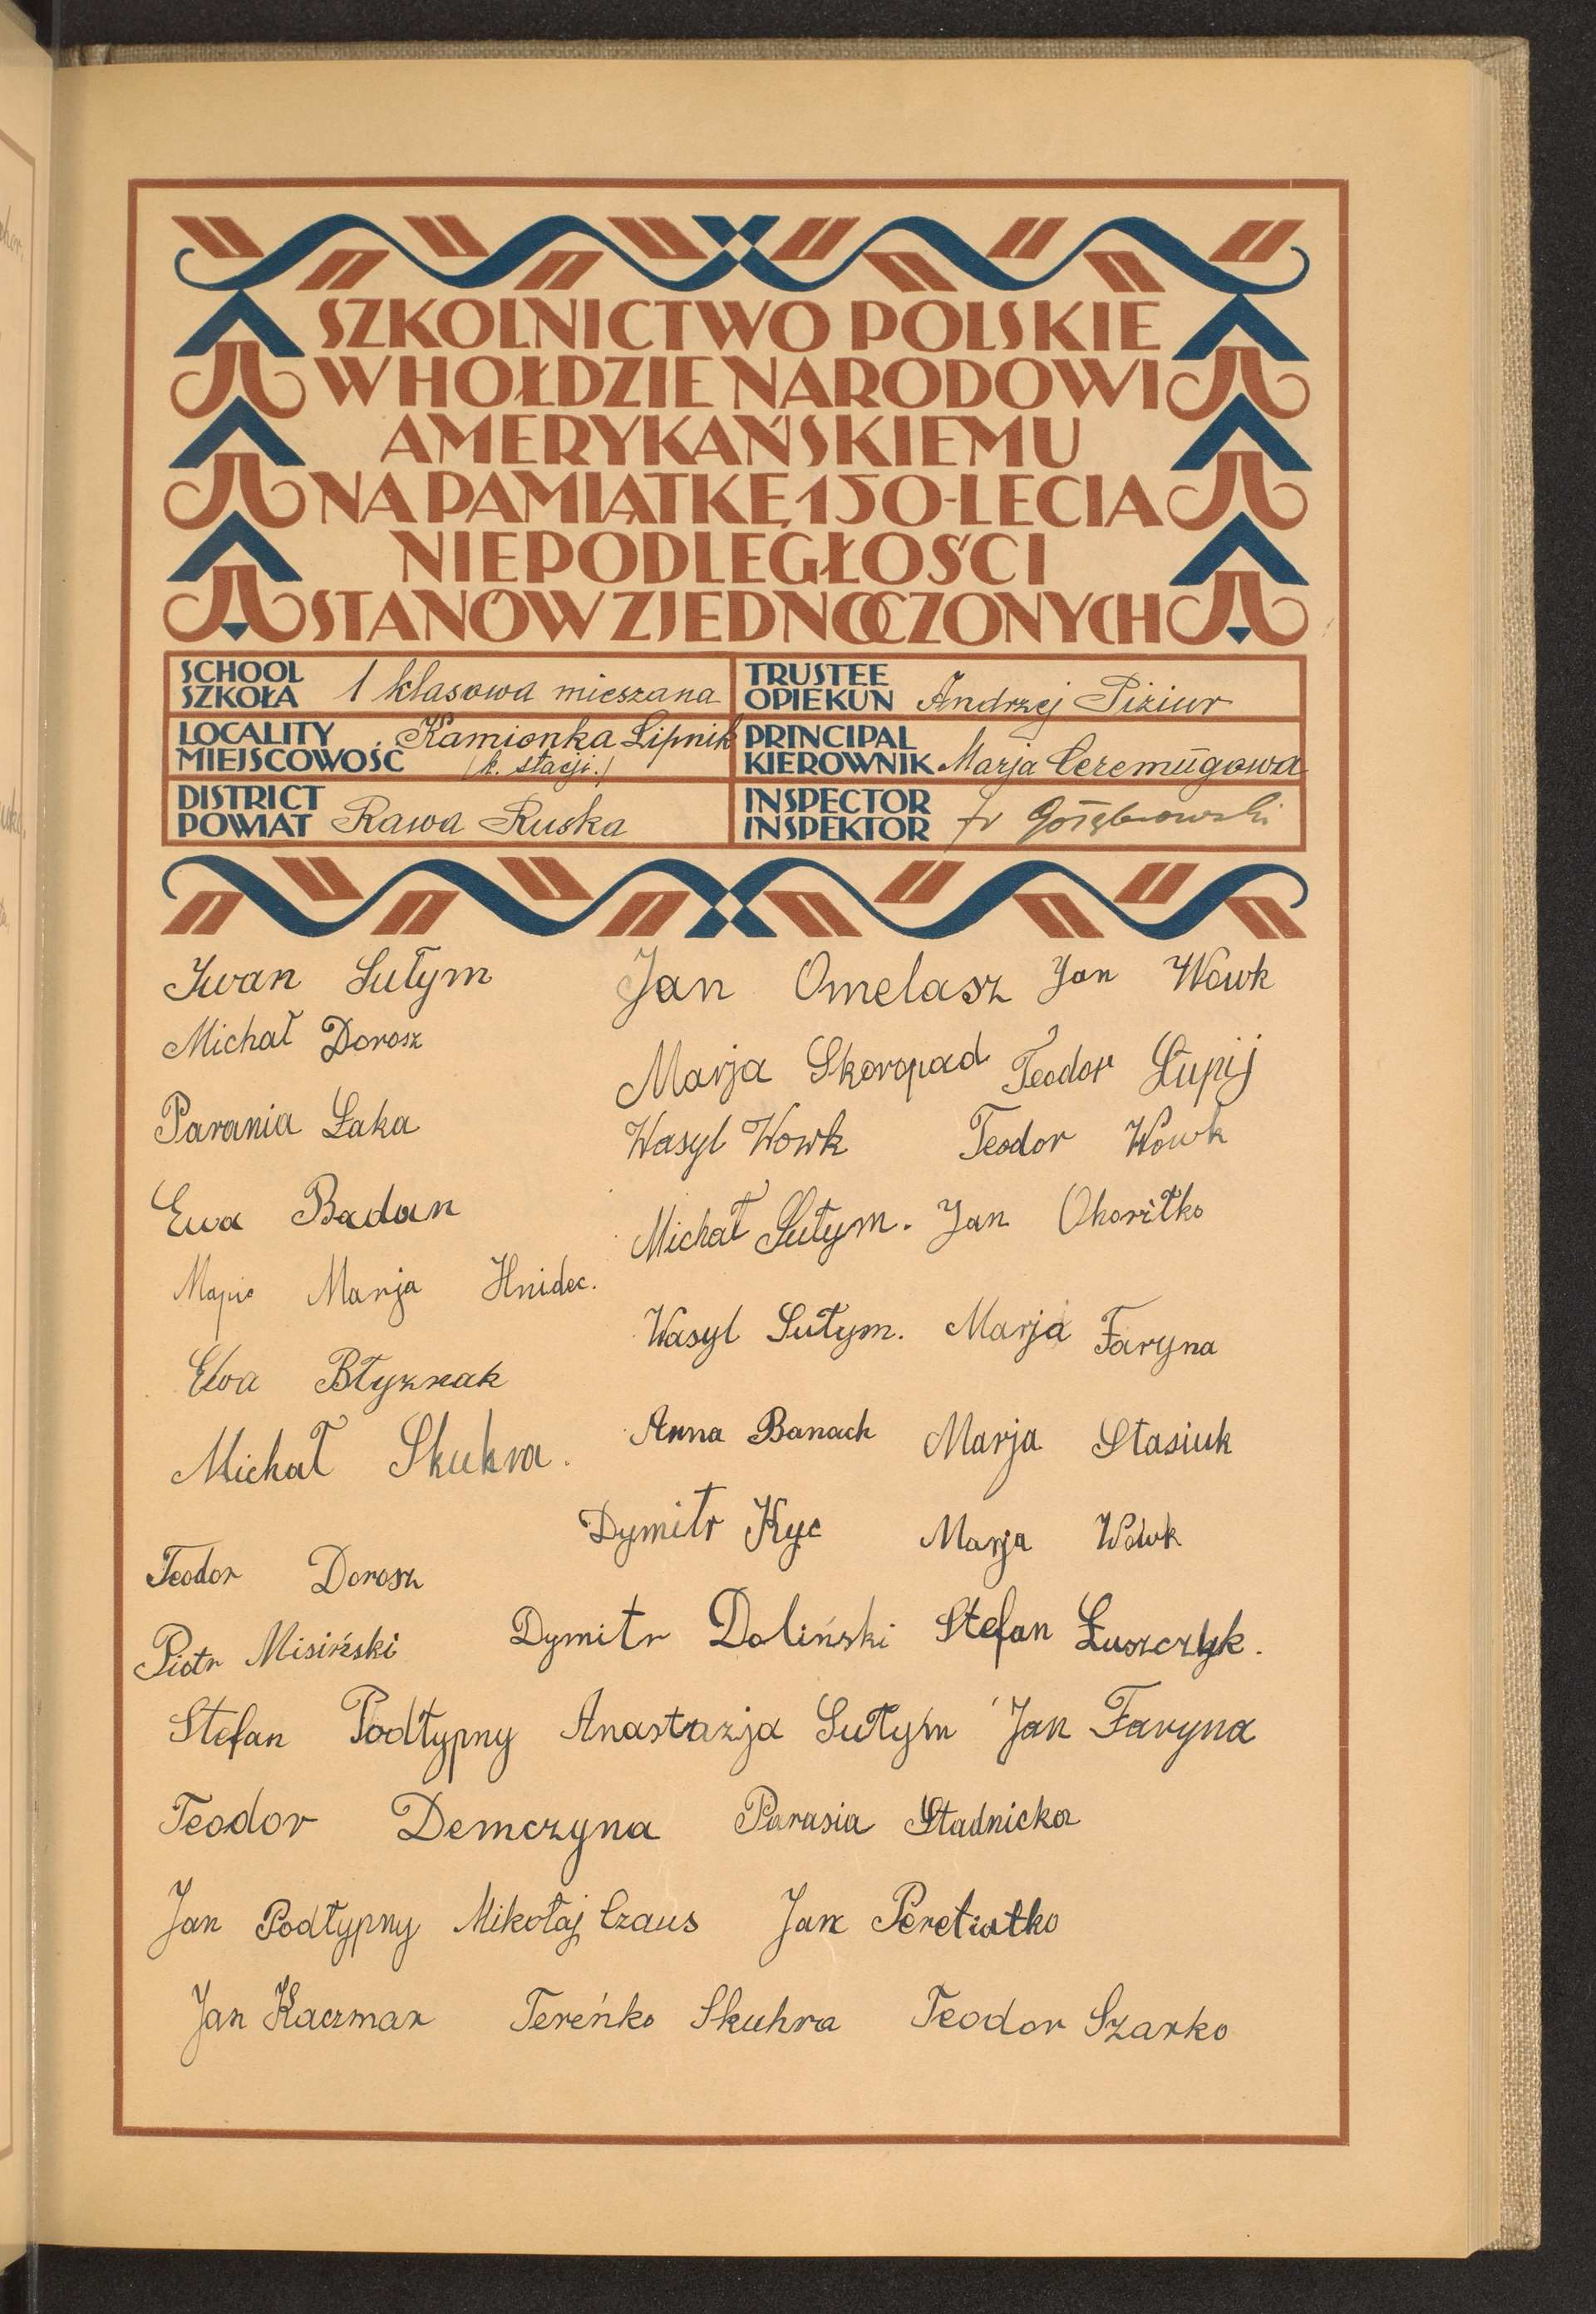 SZKOLNICTWO POLSKIE
W HOŁDZIE NARODOWI
AMERYKAŃSKIEMU
NA PAMIĄTKĘ 150-LECIA
NIEPODLEGŁOŚCI
STANÓW ZJEDNOCZONYCH
SCHOOL
SZKOŁA 1 klasowa mieszana
TRUSTEE
OPIEKUN Andrzej Piziur
LOCALITY
MIEJSCOWOŚĆ Kamionka Lipnik
(k. stacji.)
PRINCIPAL
KIEROWNIK Marja Czeremúgowa
DISTRICT
POWIAT Rawa Ruska
INSPECTOR
INSPEKTOR Gołąbrowski
Iwan Sutym Jan Omelasz Jan Wowk
Michał Dorosz Marja Skoropad Teodor Łupij
Parania Łaka Wasyl Wowk Teodor Wowk
Ewa Badan Michał Sutym. Jan Okoritko
Marja Hnidec. Wasyl Sutym. Marja Faryna
Ewa Błyznak Anna Banach Marja Stasiuk
Michał Skuhra. Dymitr Kyc Marja Wowk
Teodor Dorosz
Piotr Misiński Dymitr Doliński Stefan Łuszczyk.
Stefan Podłypny Anastazja Sutym Jan Faryna
Teodor Demczyna Parasia Stadnicka
Jan Podłypny Mikołaj Czaus Jan Peretiatko
Jan Kaczmar Tereńko Skuhra Teodor Szarko